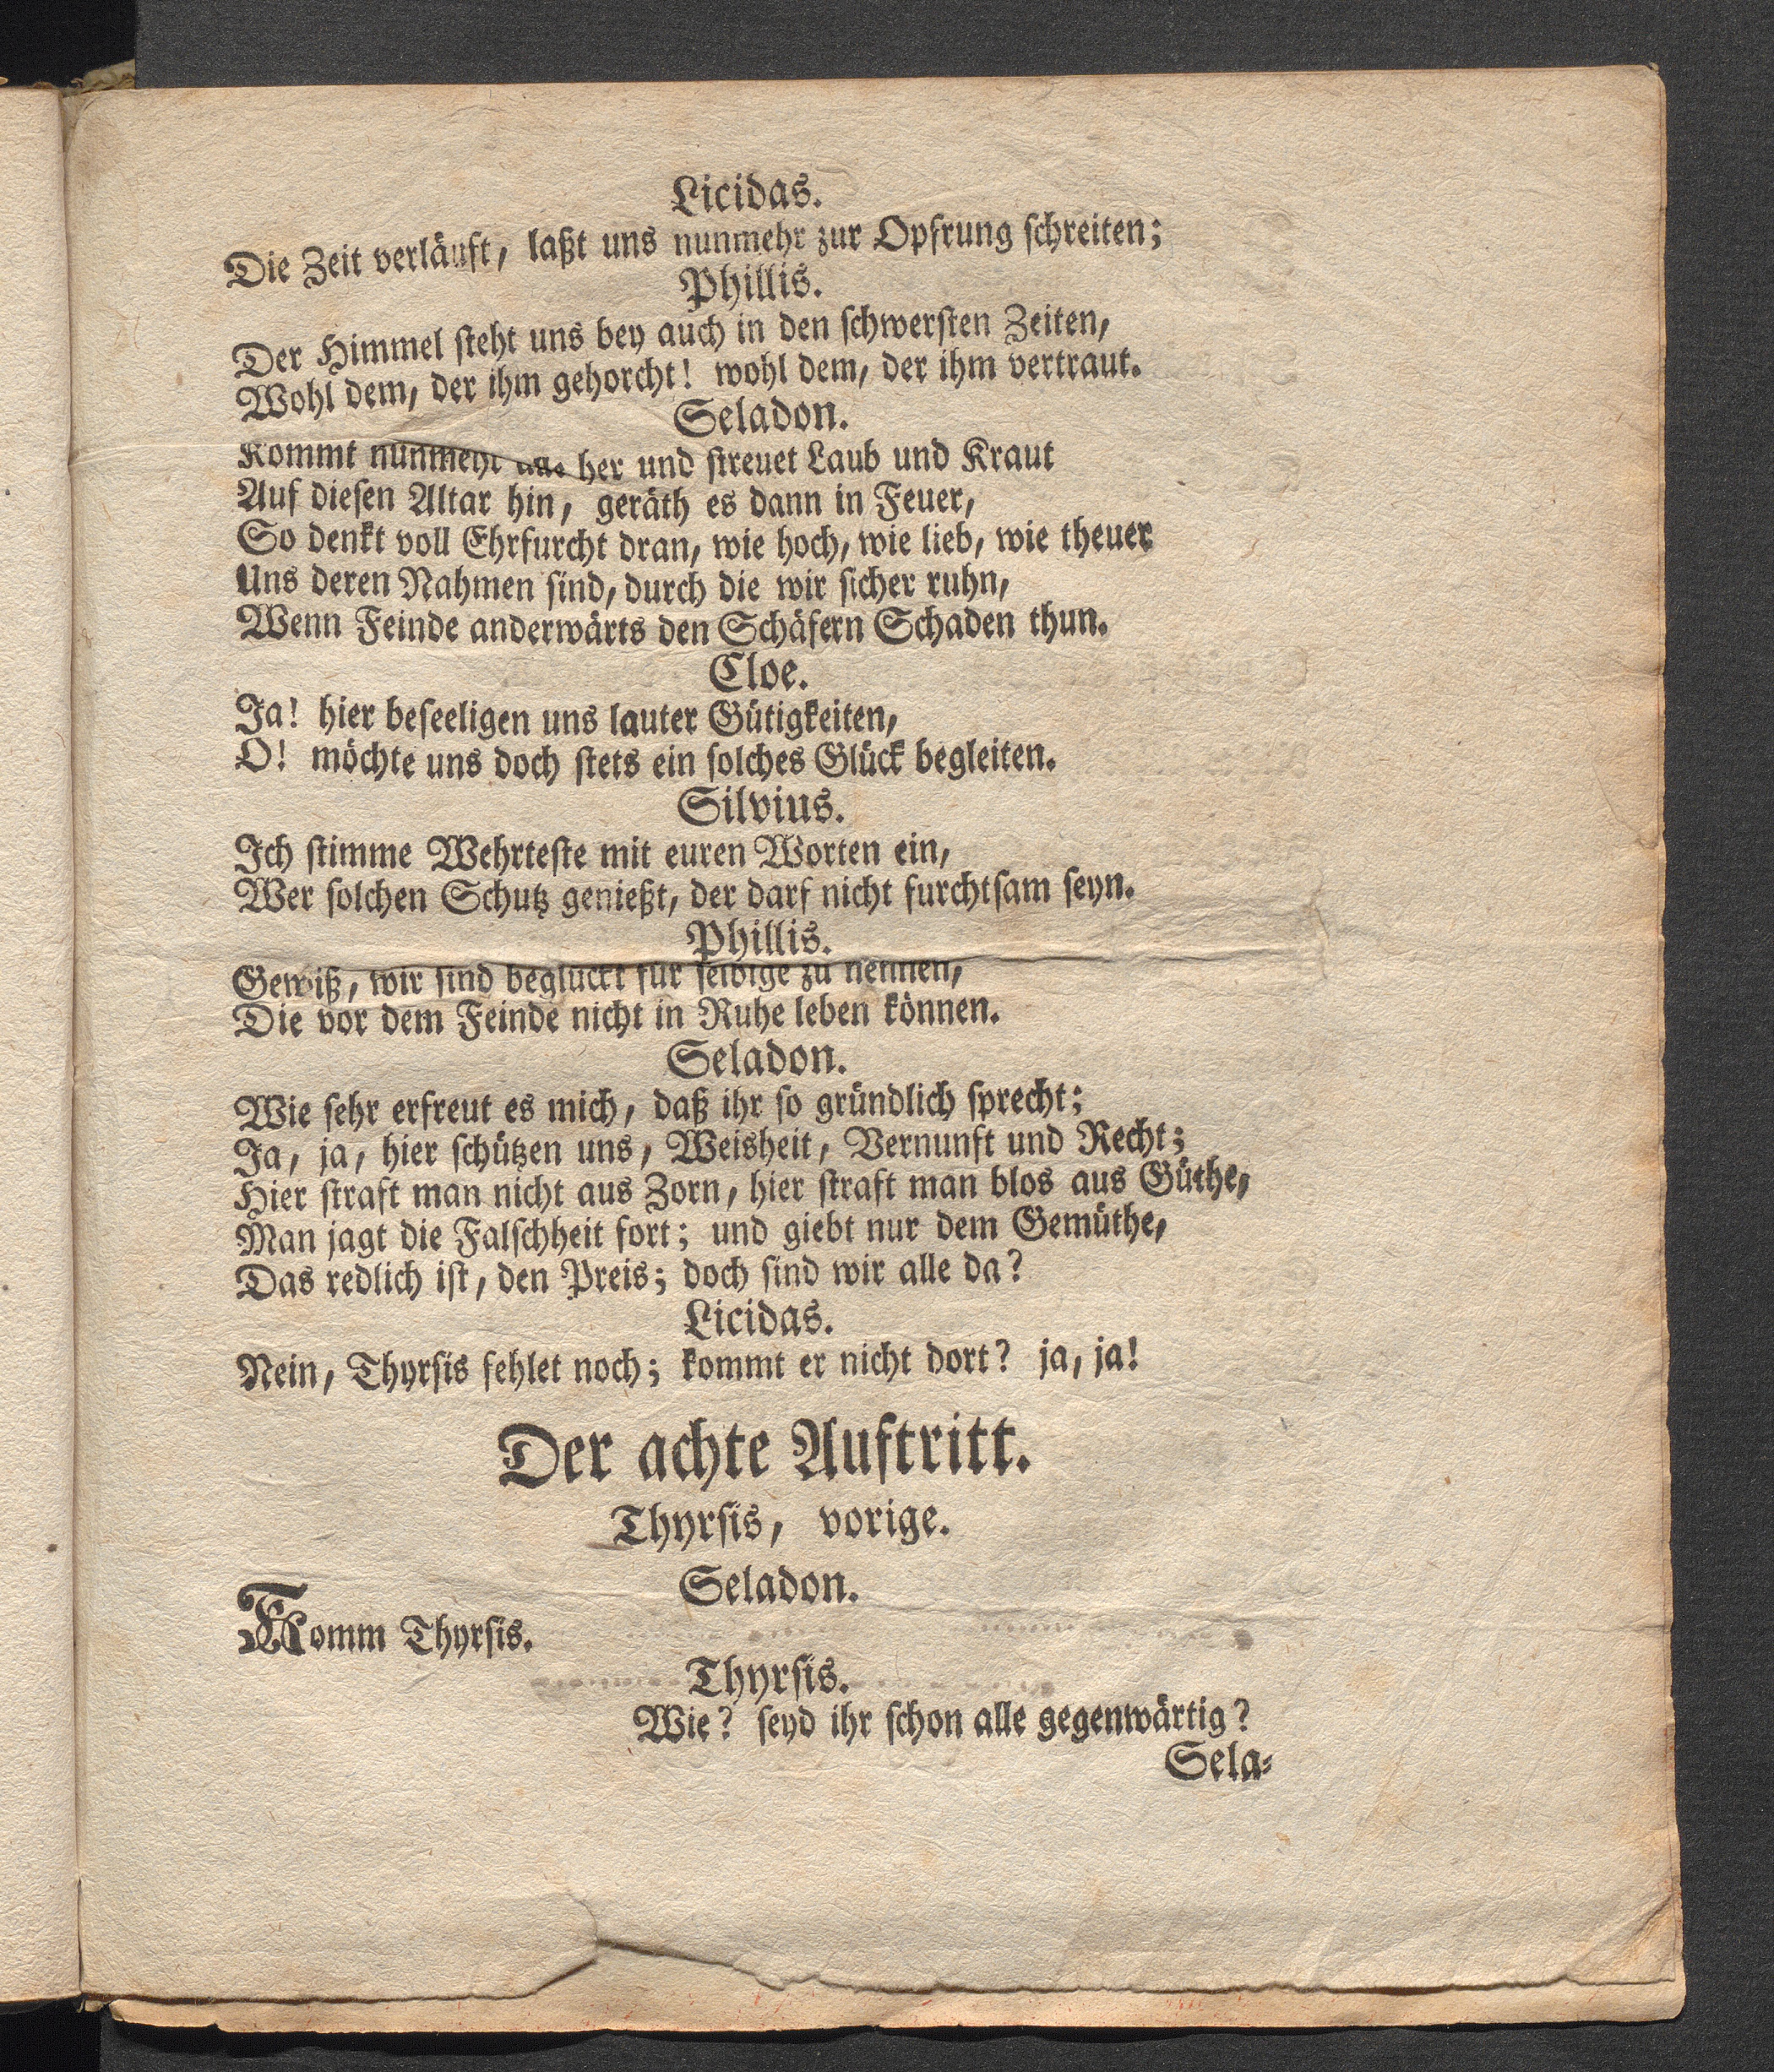 Licidas.
Die Zeit verläuft, laßt uns nunmehr zur Opfrung ſchreiten;
Phillis.
Der Himmel ſteht uns bey auch in den ſchwerſten Zeiten,
Wohl dem, der ihm gehorcht! wohl dem, der ihm vertraut.
Seladon.
Kommt nunmehr alle her und ſtreuet Laub und Kraut
Auf dieſen Altar hin, geräth es dann in Feuer,
So denkt voll Ehrfurcht dran, wie hoch, wie lieb, wie theuer
Uns deren Nahmen ſind, durch die wir ſicher ruhn,
Wenn Feinde anderwärts den Schäfern Schaden thun.
Cloe.
Ja! hier beſeeligen uns lauter Gütigkeiten,
O! möchte uns doch ſtets ein ſolches Glück begleiten.
Silvius.
Ich ſtimme Wehrteſte mit euren Worten ein,
Wer ſolchen Schutz genießt, der darf nicht furchtſam ſeyn.
Phillis.
Gewiß, wir ſind beglückt für ſelbige zu nennen,
Die vor dem Feinde nicht in Ruhe leben können.
Seladon.
Wie ſehr erfreut es mich, daß ihr ſo gründlich ſprecht;
Ja, ja, hier ſchützen uns, Weisheit, Vernunft und Recht;
Hier ſtraft man nicht aus Zorn, hier ſtraft man blos aus Güthe,
Man jagt die Falſchheit fort; und giebt nur dem Gemüthe,
Das redlich iſt, den Preis; doch ſind wir alle da?
Licidas.
Nein, Thyrſis fehlet noch; kommt er nicht dort? ja, ja!
Der achte Auftritt.
Thyrſis, vorige.
Seladon.
Komm Thyrſis.
Thyrſis.
Wie? ſeyd ihr ſchon alle gegenwärtig?
Sela-